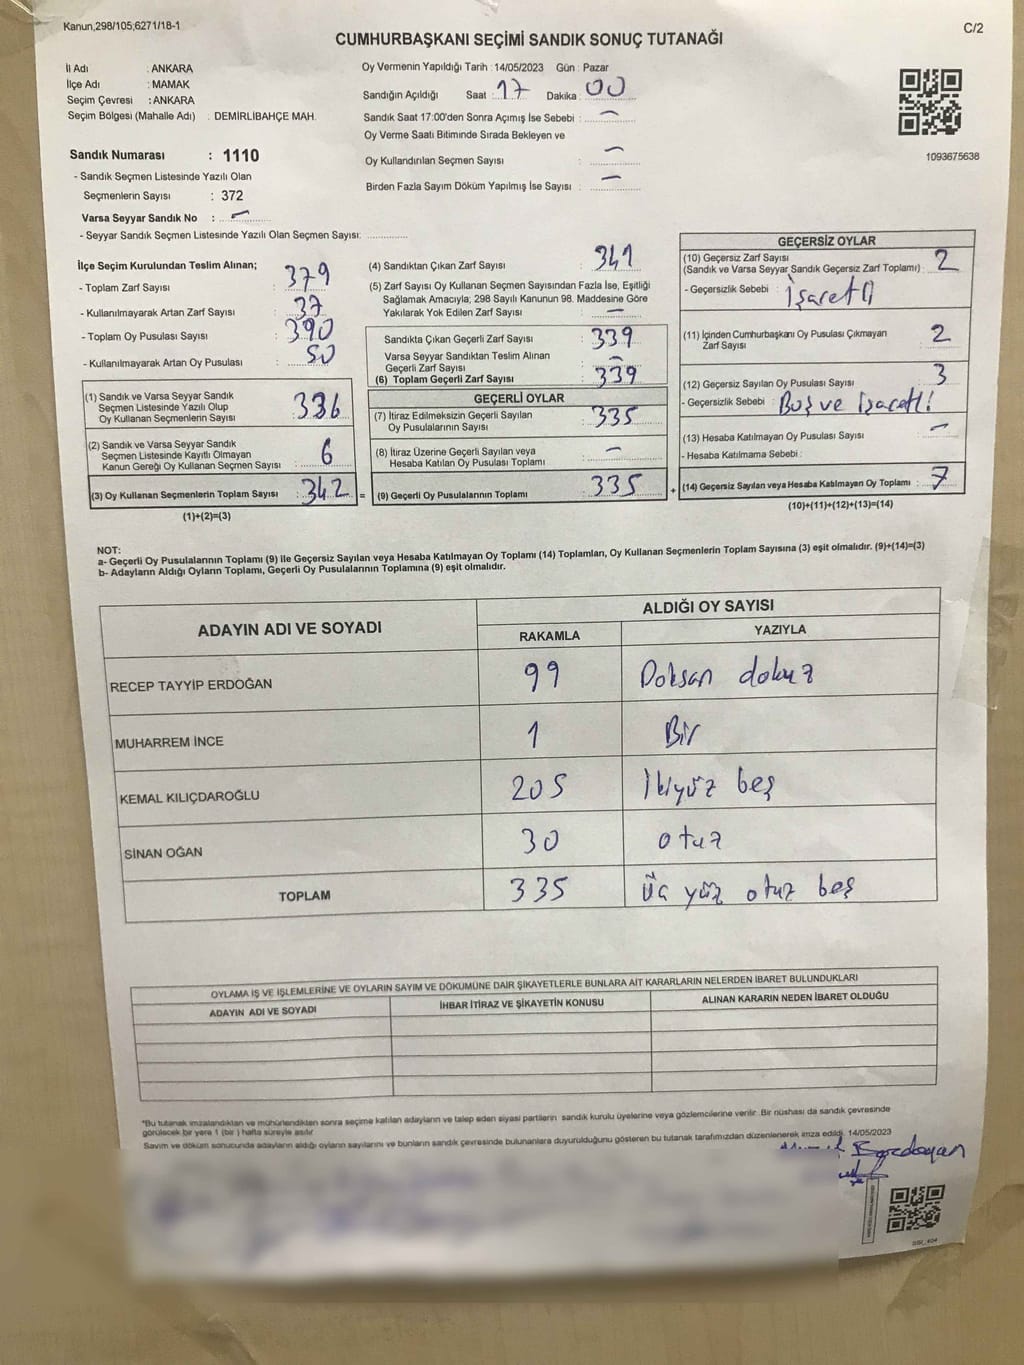 Kanun,298/105;6271/18-1
C/2
CUMHURBAŞKANI SEÇİMİ SANDIK SONUÇ TUTANAĞI
İl Adı : ANKARA
İlçe Adı : MAMAK
Seçim Çevresi : ANKARA
Seçim Bölgesi (Mahalle Adı) : DEMİRLİBAHÇE MAH.
Sandık Numarası : 1110
- Sandık Seçmen Listesinde Yazılı Olan
Seçmenlerin Sayısı : 372
Varsa Seyyar Sandık No : —
- Seyyar Sandık Seçmen Listesinde Yazılı Olan Seçmen Sayısı: ..............
Oy Vermenin Yapıldığı Tarih : 14/05/2023 Gün : Pazar
Sandığın Açıldığı Saat : 17 Dakika : 00
Sandık Saat 17:00'den Sonra Açımış İse Sebebi : —
Oy Verme Saati Bitiminde Sırada Bekleyen ve
Oy Kullandırılan Seçmen Sayısı : —
Birden Fazla Sayım Döküm Yapılmış İse Sayısı : —
1093675638
İlçe Seçim Kurulundan Teslim Alınan;
- Toplam Zarf Sayısı : 379
- Kullanılmayarak Artan Zarf Sayısı : 37
- Toplam Oy Pusulası Sayısı : 390
- Kullanılmayarak Artan Oy Pusulası : 50
(1) Sandık ve Varsa Seyyar Sandık
Seçmen Listesinde Yazılı Olup
Oy Kullanan Seçmenlerin Sayısı : 336
(2) Sandık ve Varsa Seyyar Sandık
Seçmen Listesinde Kayıtlı Olmayan
Kanun Gereği Oy Kullanan Seçmen Sayısı : 6
(3) Oy Kullanan Seçmenlerin Toplam Sayısı : 342 =
(1)+(2)=(3)
(4) Sandıktan Çıkan Zarf Sayısı : 341
(5) Zarf Sayısı Oy Kullanan Seçmen Sayısından Fazla İse, Eşitliği
Sağlamak Amacıyla; 298 Sayılı Kanunun 98. Maddesine Göre
Yakılarak Yok Edilen Zarf Sayısı : —
Sandıkta Çıkan Geçerli Zarf Sayısı : 339
Varsa Seyyar Sandıktan Teslim Alınan
Geçerli Zarf Sayısı : —
(6) Toplam Geçerli Zarf Sayısı : 339
GEÇERLİ OYLAR
(7) İtiraz Edilmeksizin Geçerli Sayılan
Oy Pusulalarının Sayısı : 335
(8) İtiraz Üzerine Geçerli Sayılan veya
Hesaba Katılan Oy Pusulası Toplamı : —
(9) Geçerli Oy Pusulalarının Toplamı : 335 +
GEÇERSİZ OYLAR
(10) Geçersiz Zarf Sayısı
(Sandık ve Varsa Seyyar Sandık Geçersiz Zarf Toplamı) : 2
- Geçersizlik Sebebi : İşaretli
(11) İçinden Cumhurbaşkanı Oy Pusulası Çıkmayan
Zarf Sayısı : 2
(12) Geçersiz Sayılan Oy Pusulası Sayısı : 3
- Geçersizlik Sebebi : Boş ve işaretli
(13) Hesaba Katılmayan Oy Pusulası Sayısı : —
- Hesaba Katılmama Sebebi :
(14) Geçersiz Sayılan veya Hesaba Katılmayan Oy Toplamı : 7
(10)+(11)+(12)+(13)=(14)
NOT:
a- Geçerli Oy Pusulalarının Toplamı (9) ile Geçersiz Sayılan veya Hesaba Katılmayan Oy Toplamı (14) Toplamları, Oy Kullanan Seçmenlerin Toplam Sayısına (3) eşit olmalıdır. (9)+(14)=(3)
b- Adayların Aldığı Oyların Toplamı, Geçerli Oy Pusulalarının Toplamına (9) eşit olmalıdır.
ADAYIN ADI VE SOYADI
ALDIĞI OY SAYISI
RAKAMLA YAZIYLA
RECEP TAYYİP ERDOĞAN 99 Doksan dokuz
MUHARREM İNCE 1 Bir
KEMAL KILIÇDAROĞLU 205 İkiyüz beş
SİNAN OĞAN 30 otuz
TOPLAM 335 Üç yüz otuz beş
OYLAMA İŞ VE İŞLEMLERİNE VE OYLARIN SAYIM VE DÖKÜMÜNE DAİR ŞİKAYETLERLE BUNLARA AİT KARARLARIN NELERDEN İBARET BULUNDUKLARI
ADAYIN ADI VE SOYADI İHBAR İTİRAZ VE ŞİKAYETİN KONUSU ALINAN KARARIN NEDEN İBARET OLDUĞU
"Bu tutanak imzalandıktan ve mühürlendikten sonra seçime katılan adayların ve talep eden siyasi partilerin sandık kurulu üyelerine veya gözlemcilerine verilir. Bir nüshası da sandık çevresinde
görülecek bir yere 1 (bir ) hafta süreyle asılır
Sayım ve döküm sonucunda adayların aldığı oyların sayılarını ve bunların sandık çevresinde bulunanlara duyurulduğunu gösteren bu tutanak tarafımızdan düzenlenerek imza edildi. 14/05/2023